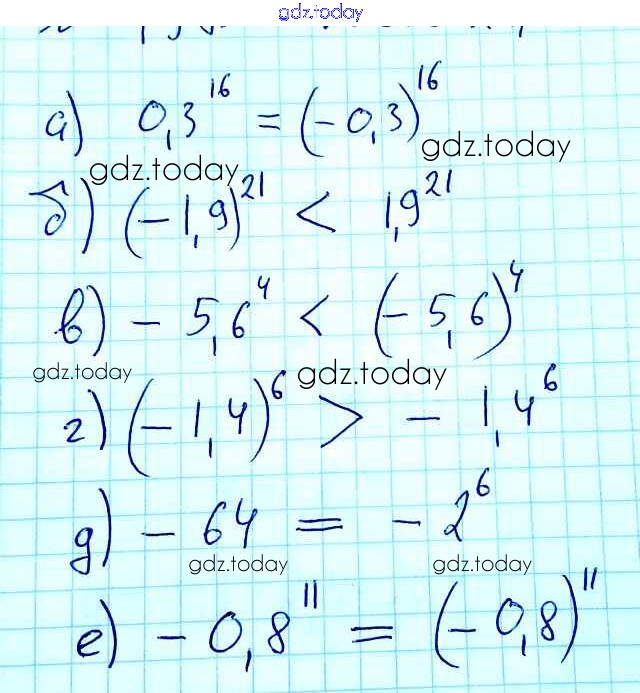 gdz.today
а) 0,3¹⁶ = (-0,3)¹⁶
gdz.today
gdz.today
б) (-1,9)²¹ < 1,9²¹
в) - 5,6⁴ < (- 5,6)⁴
gdz.today
gdz.today
г) (-1,4)⁶ > - 1,4⁶
д) - 64 = - 2⁶
gdz.today
gdz.today
е) - 0,8¹¹ = (-0,8)¹¹